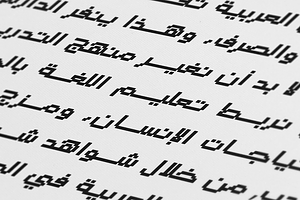 العربية
والصرف، وهذا ينفر الدارس
لا بد أن نغير منهج التدر
نربط تعليم اللغة بال
ياجات الإنسان، ومزج
من خلال شواهد ش
العربية في